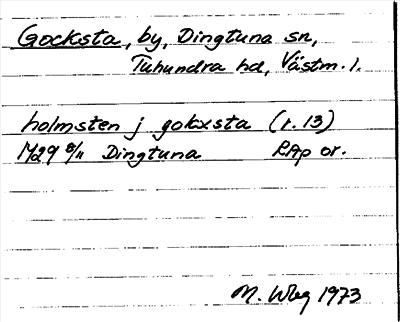 Gocksta, by, Dingtuna sn,
Tuhundra hd, Västm. l.
holmsten j gokxsta (r. 13)
1429 8/11 Dingtuna RAp or.
M. Wbg 1973